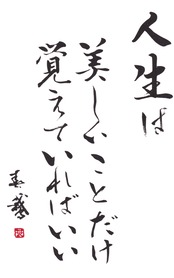 人生は
美しいことだけ
覚えていればいい